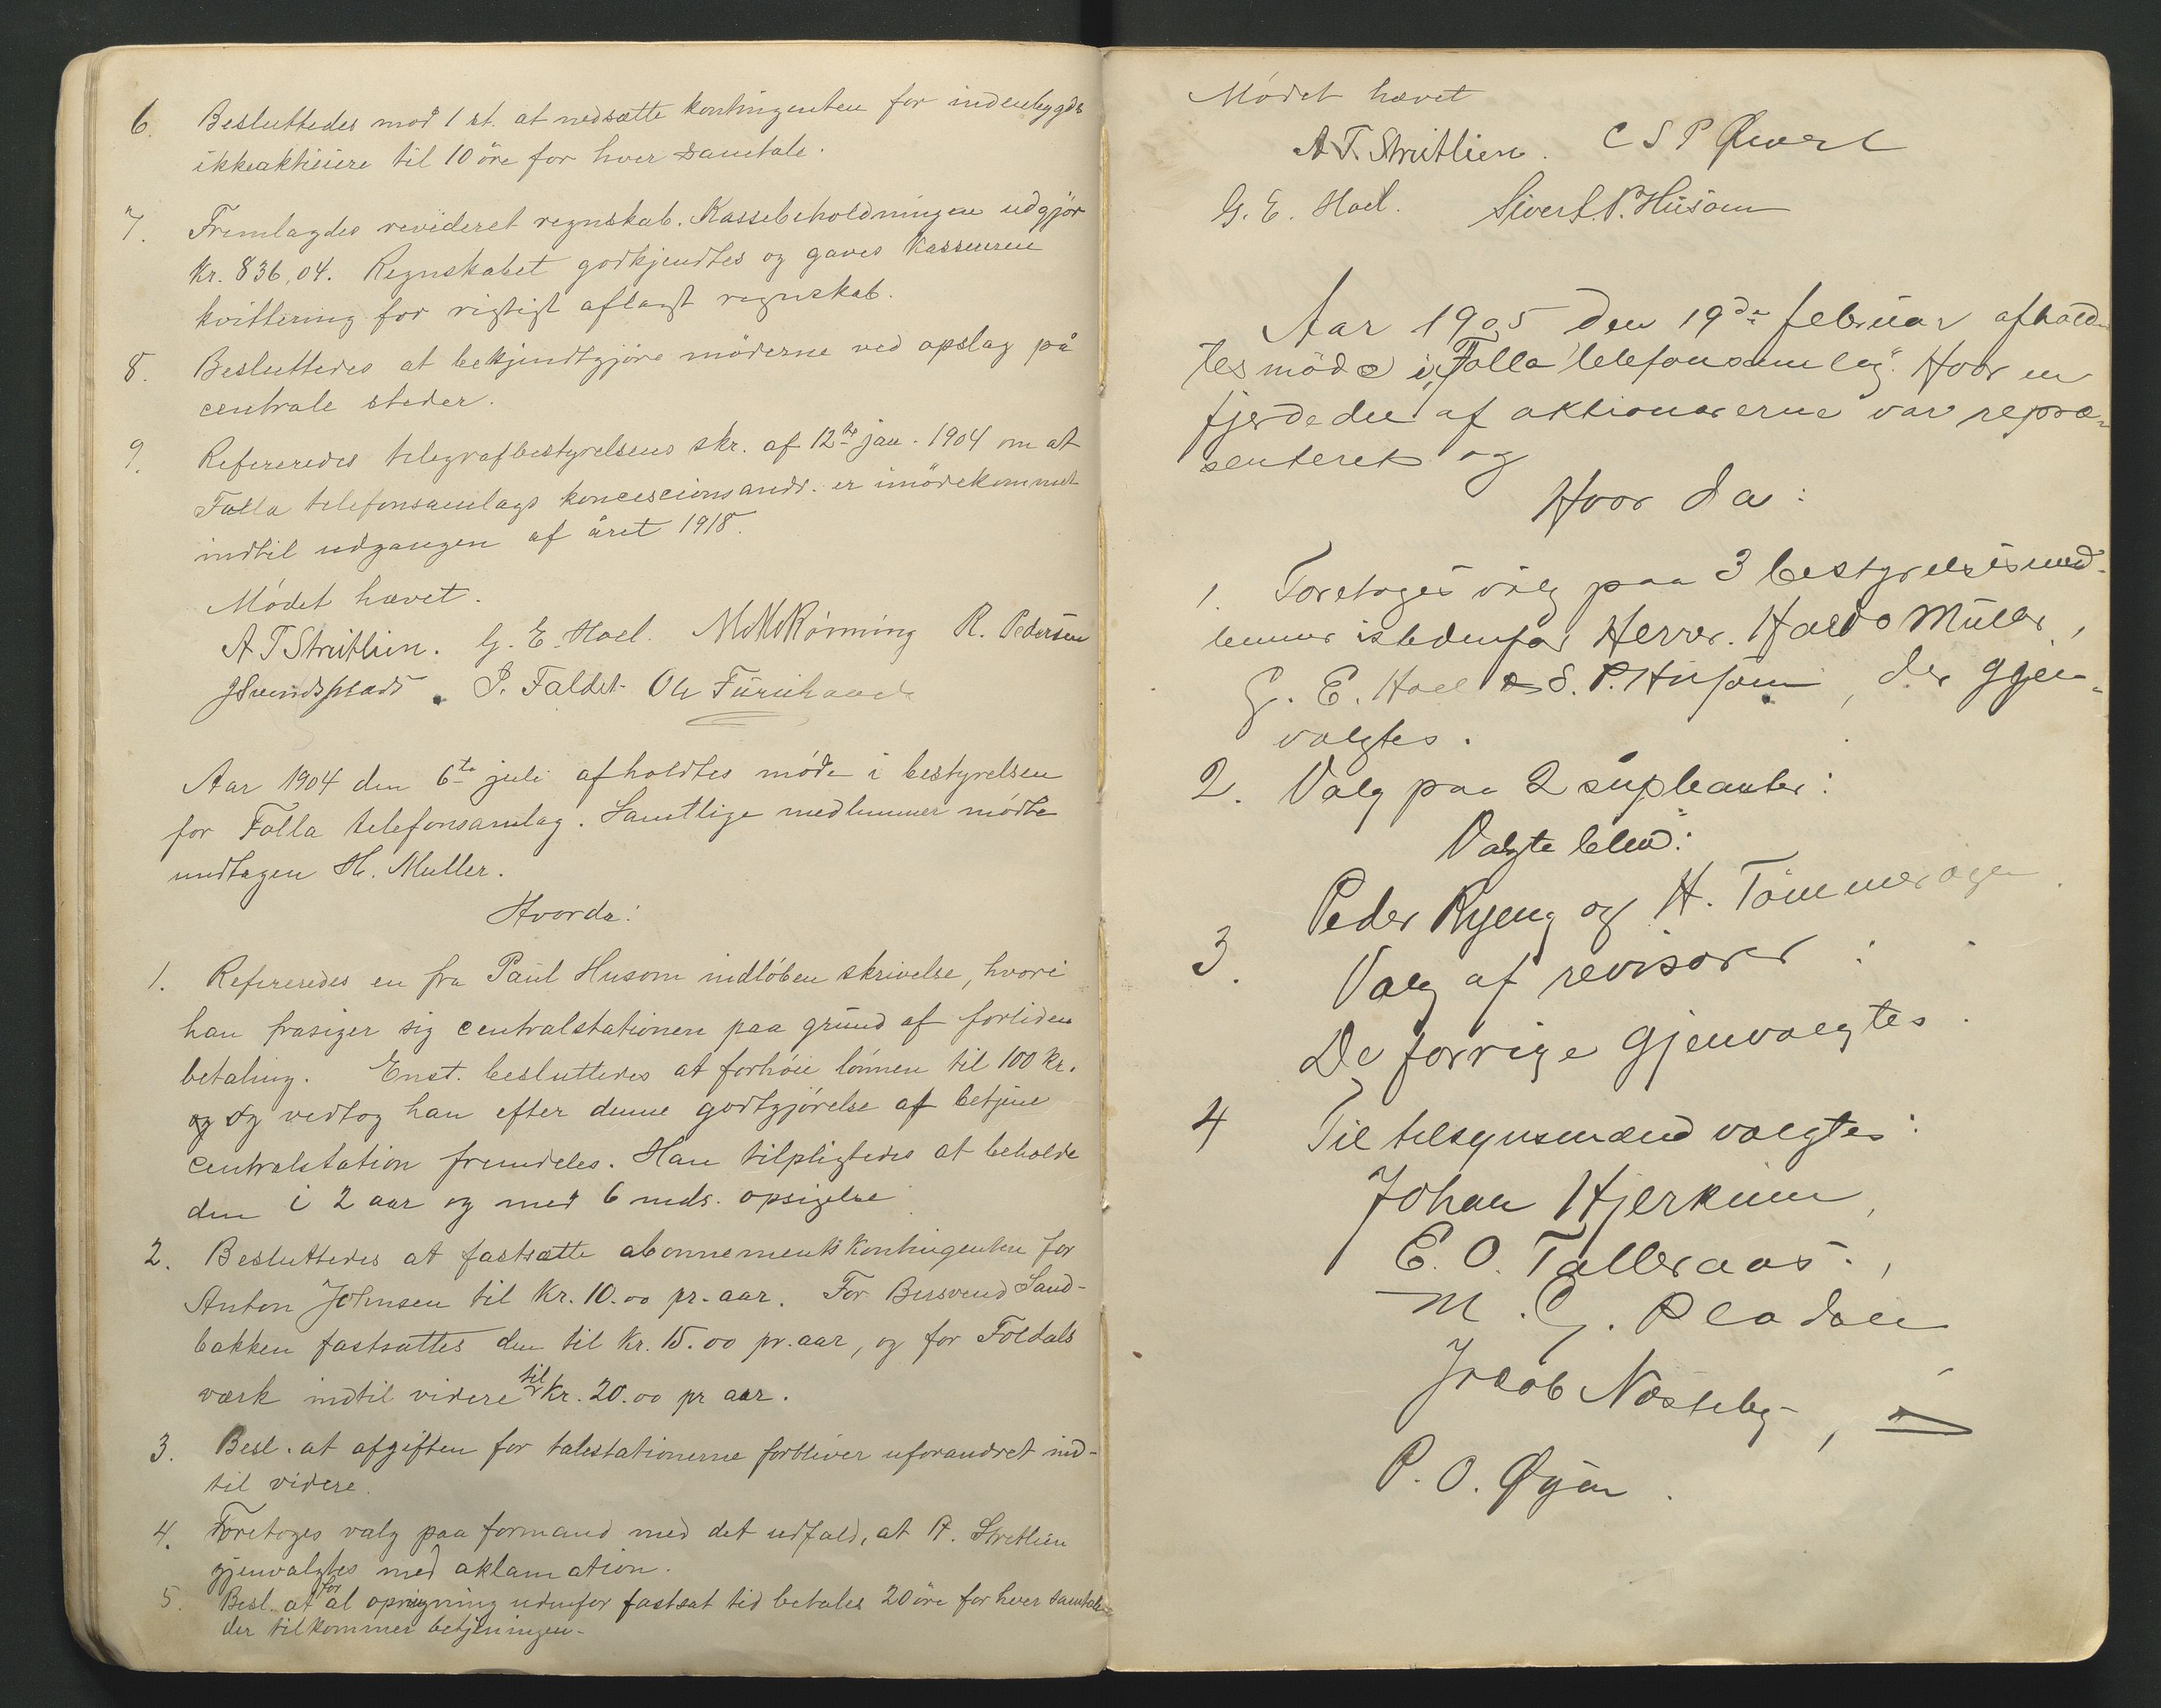 6. Besluttedes mod 1 st. at nedsætte kontingenten for indenbygds
ikkeaktiøiere til 10 øre for hver samtale.
7. Fremlagdes revideret regnskab. Kassebeholdningen udgjør
Kr. 836,04. Regnskabet godkjendtes og gaves kassereren
kvittering for rigtigt aflagt regnskab.
8. Besluttedes at bekjendtgjøre møderne ved opslag på
centrale steder.
9. Refereredes telegrafbestyrelsens skr. af 12te jan. 1904 om at
Folla telefonsamlags koncescionsandr. er imødekommet
indtil udgangen af året 1918.
Mödet hævet.
A T Streitlien. G. E. Hoel. M M Rönning R. Pedersen
J Svendsplads. P. Faldet Ole Furuhaad
Aar 1904 den 6te juli afholdtes møde i bestyrelsen
for Folla telefonsamlag. Samtlige medlemmer mødte
undtagen H. Muller.
Hvorda:
1. Refereredes en fra Paul Husom indløben skrivelse, hvori
han frasiger sig centralstationen paa grund af forliden
betaling. Enst. besluttedes at forhøie lønnen til 100 kr.
og og vedtog han efter denne godtgjørelse at betjene
centralstation fremdeles. Han tilpligtedes at beholde
den i 2 aar og med 6 mds. opsigelse
2. Besluttedes at fastsætte abonnementskontingenten for
Anton Johnsen til Kr. 10.00 pr. aar. For Bersvend Sand-
bakken fastsattes den til kr. 15.00 pr. aar, og for Foldals
værk indtil videre til Kr. 20.00 pr aar.
3. Besl. at afgiften for talestationerne forbliver uforandret ind-
til videre.
4. Foretoges valg paa formand med det udfald, at A. Streitlien
gjenvalgtes med aklamation.
5. Besl. at for al opringning udenfor fastsat tid betales 20 øre for hver samtale
der tilkommer betjeningen.
Mödet hævet
A T. Streitlien. C S P
G. E. Hoel. Sivert. P. Husom
Aar 1905 den 19de februar afhold-
tes möde i "Folla telefonsamlag". Hvor en
fjerdedel af aktionærerne var repræ-
senteret og
Hvor da:
1. Foretoges valg paa 3 bestyrelsesmed-
lemmer istedenfor Herrer. Haldo Müller,
G. E. Hoel & S. P. Husom, der gjen-
valgtes.
2. Valg paa 2 supleanter:
Valgte blev:
Peder Ryeng og H. Tömmeraasen
3. Valg af revisorer:
De forrige gjenvalgtes.
4 Til tilsynsmænd valgtes:
Johan Hjerkinn,
E. O. Talleraas.,
M. G.
Jacob Næsteby,
P. O. Øyen.